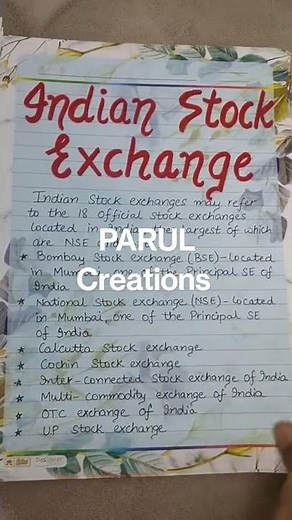 Indian Stock
Exchange
Indian Stock exchanges may refer
to the 18 official stock exchanges
located in India, the largest of which
are NSE
PARUL
Creations
★ Bombay Stock exchange (BSE)-located
in Mumbai, one of the Principal SE of
India
★ National Stock exchange (NSE)-located
in Mumbai, one of the Principal SE
of India
★ Calcutta Stock exchange
★ Cochin Stock exchange
★ Inter-connected Stock exchange of India
★ Multi-commodity exchange of India
★ OTC exchange of India
★ UP Stock exchange